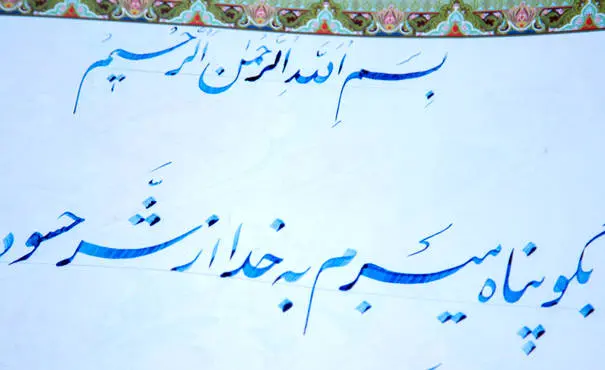 بِسَمِ اللَّهِ الرَّحْمٰنِ الرَّحیم
بگو پناه میبرم به خدا از شَّر حسود